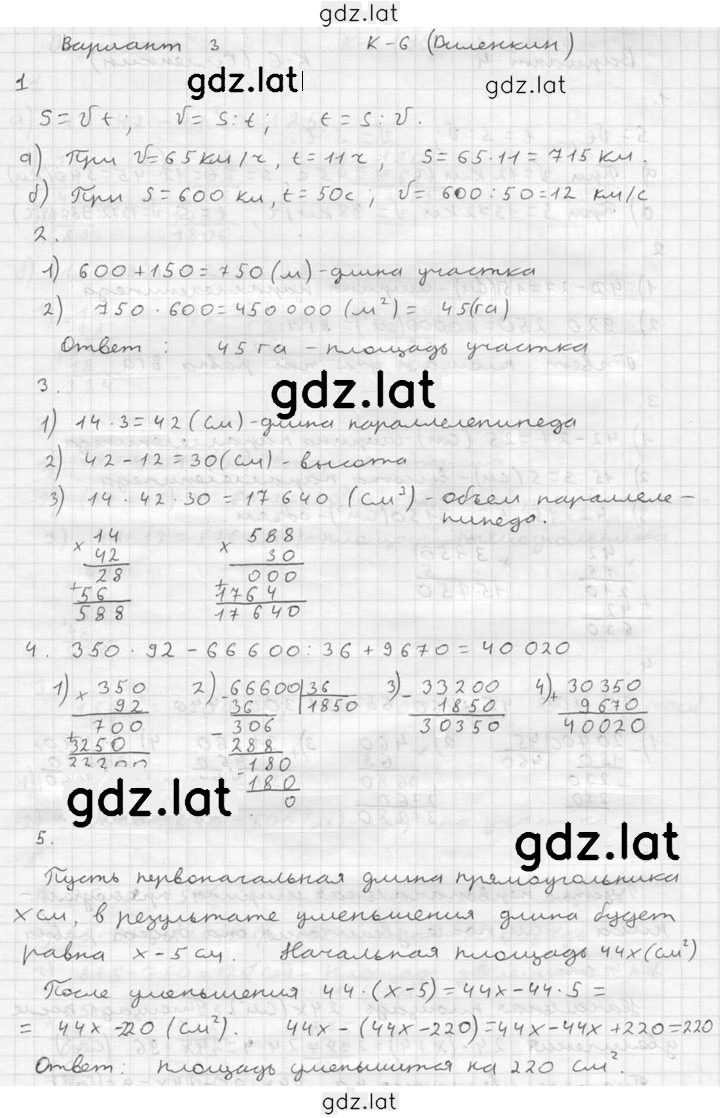 gdz.lat
Вариант 3 К-6 (Виленкин)
gdz.lat gdz.lat
1
S = v t; v = S : t; t = S : v.
а) При v = 65 км/ч, t = 11 ч; S = 65 · 11 = 715 км.
б) При S = 600 км, t = 50 с; v = 600 : 50 = 12 км/с
2.
1) 600 + 150 = 750 (м) - длина участка
2) 750 · 600 = 450 000 (м²) = 45 (га)
Ответ: 45 га - площадь участка
gdz.lat
3.
1) 14 · 3 = 42 (см) - длина параллелепипеда
2) 42 - 12 = 30 (см) - высота
3) 14 · 42 · 30 = 17 640 (см³) - объем параллеле-
пипеда.
× 14 × 588
42 30
28 + 000
+ 56 1764
588 17640
4. 350 · 92 - 66600 : 36 + 9670 = 40 020
1) × 350 2) - 66600 | 36 3) - 33200 4) + 30350
92 36 1850 1850 9670
+ 700 - 306 30350 40020
3250 288
- 180
180
0
gdz.lat gdz.lat
5.
Пусть первоначальная длина прямоугольника
x см, в результате уменьшения длина будет
равна x - 5 см. Начальная площадь 44x (см²)
После уменьшения 44 · (x - 5) = 44x - 44 · 5 =
= 44x - 220 (см²). 44x - (44x - 220) = 44x - 44x + 220 = 220
Ответ: площадь уменьшится на 220 см².
gdz.lat